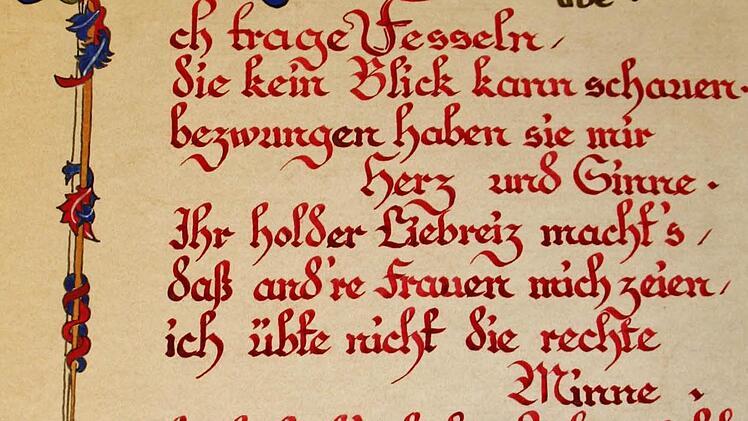 ch trage Fesseln /
die kein Blick kann schauen.
bezwungen haben sie mir
Herz und Sinne.
Ihr holder Liebreiz macht's /
daß and're Frauen mich zeien /
ich übte nicht die rechte
Minne.